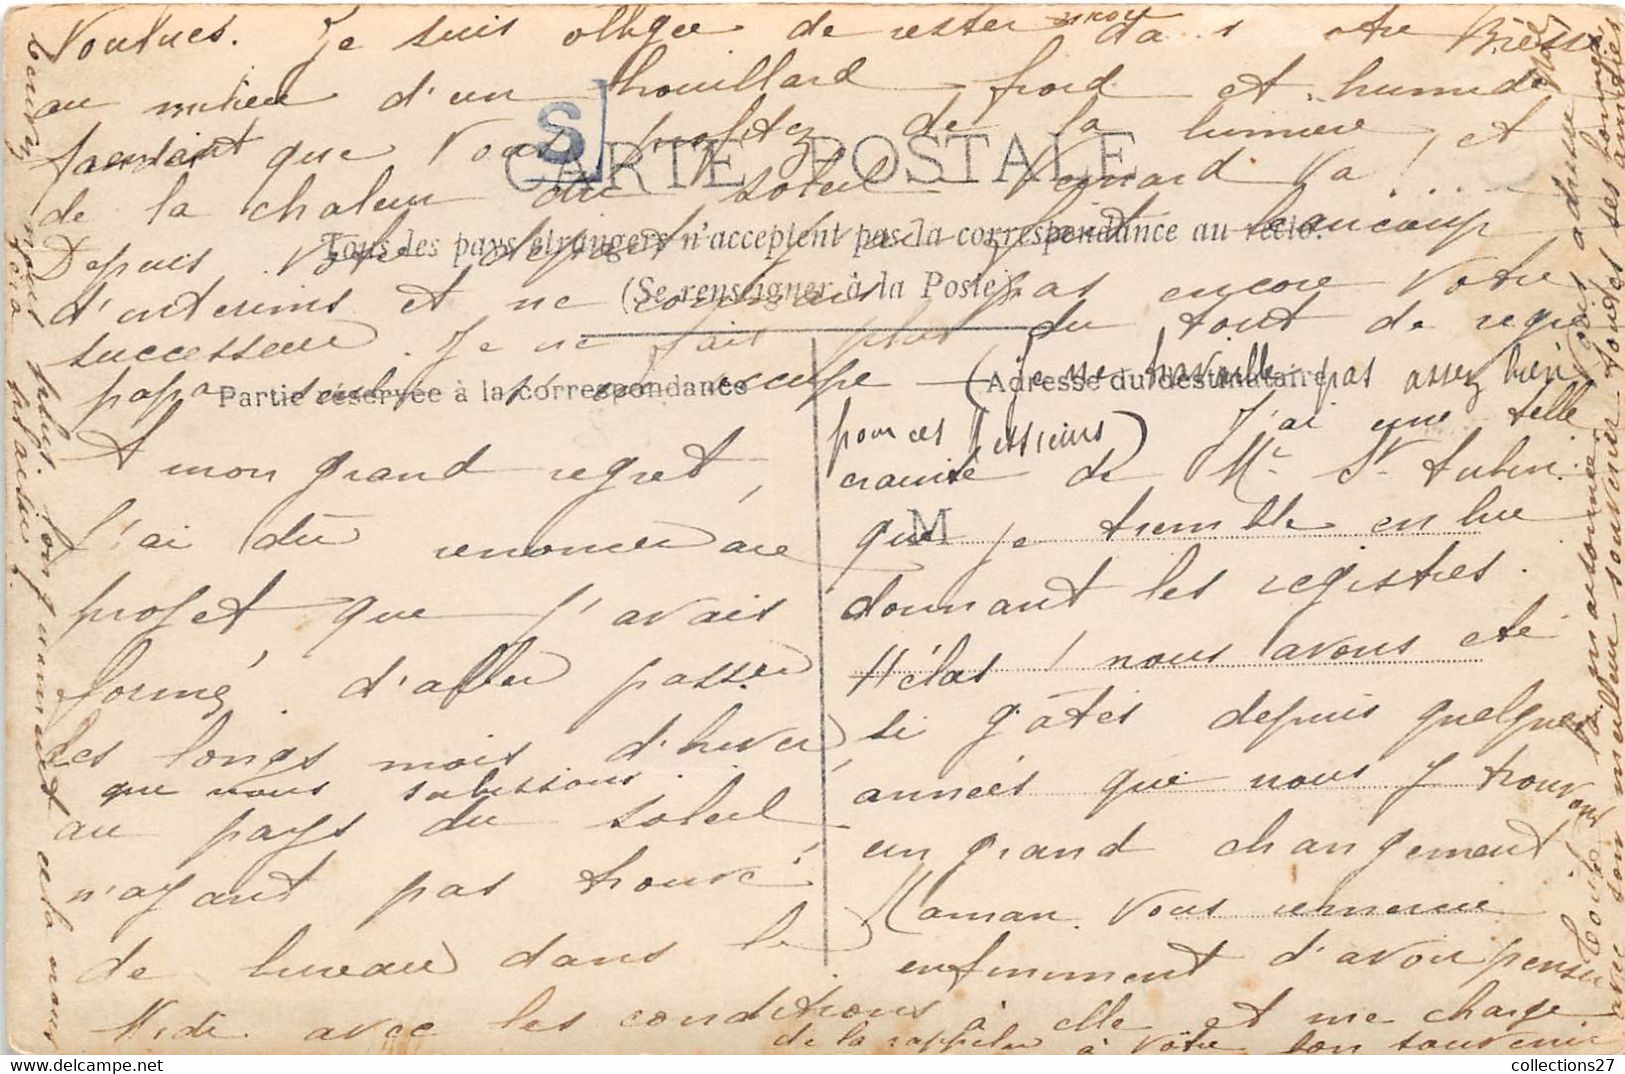 voulues. Je suis obligée de rester encore dans notre Bresse
au milieu d'un brouillard froid et humide
pendant que vous profitez de la lumière, et
de la chaleur du soleil. Veinard va! ...
Depuis votre départ j'ai fait beaucoup
d'interims et ne connais pas encore votre
successeur. Je ne fais plus du tout de regie
papa seul s'en occupe (je ne travaille pas assez bien
pour ces Messieurs)
A mon grand regret,
j'ai dû renoncer au
projet que j'avais
formé, d'aller passer
les longs mois d'hiver
que nous subissons
au pays du soleil
n'ayant pas trouvé
de bureau dans le
Midi avec les conditions
J'ai une telle
crainte de Mr St Aubin
que je tremble en lui
donnant les registres.
Hélas! nous avons été
si gâtés depuis quelques
années que nous y trouvons
un grand changement
Maman vous remercie
infiniment d'avoir pensé
à elle et me charge
de la rappeler à votre bon souvenir
Toute la maisonnée
vous adresse
avec son meilleur souvenir toutes ses amitiés
CARTE POSTALE
Tous les pays étrangers n'acceptent pas la correspondance au recto.
(Se renseigner à la Poste)
Partie réservée à la correspondance
Adresse du destinataire
M
S
collections27